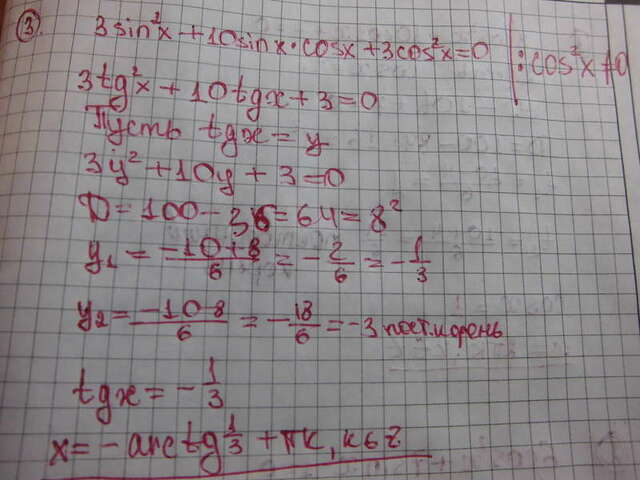 ③ 3sin²x + 10sinx·cosx + 3cos²x = 0 | : cos²x ≠ 0
3tg²x + 10tgx + 3 = 0
Пусть tgx = y
3y² + 10y + 3 = 0
D = 100 - 36 = 64 = 8²
y₁ = (-10+8)/6 = -2/6 = -1/3
y₂ = (-10 8)/6 = -18/6 = -3 пост. корень
tgx = -1/3
x = -arctg 1/3 + πк, к ∈ Z